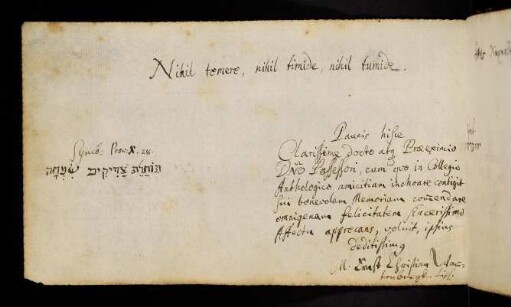 Nihil temere, nihil timide, nihil tumide.
Symb. Prov. X. 28.
תוחלת צדיקים שמחה
Paucis hisce
Clarissimo docto atq Præeximio
Dno Possessori, cum quo in Collegio
Anthologico amicitiam inchoare contigit
sui benevolam Memoriam comendare
omnigenam felicitatem sincerissimo
Affectu apprecans, voluit, ipsius
deditissimq
M. Ernst Christian